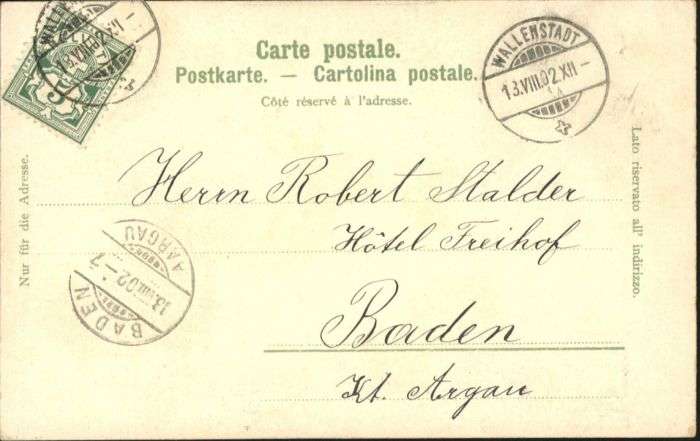 WALLENSTADT
5
Carte postale.
Postkarte. — Cartolina postale.
Côté réservé à l'adresse.
WALLENSTADT
13.VIII.02.XII–
Nur für die Adresse.
Lato riservato all' indirizzo.
Herrn Robert Stalder
Hôtel Freihof
Baden
Kt. Argau
AARGAU
13.VIII.02.–7
BADEN